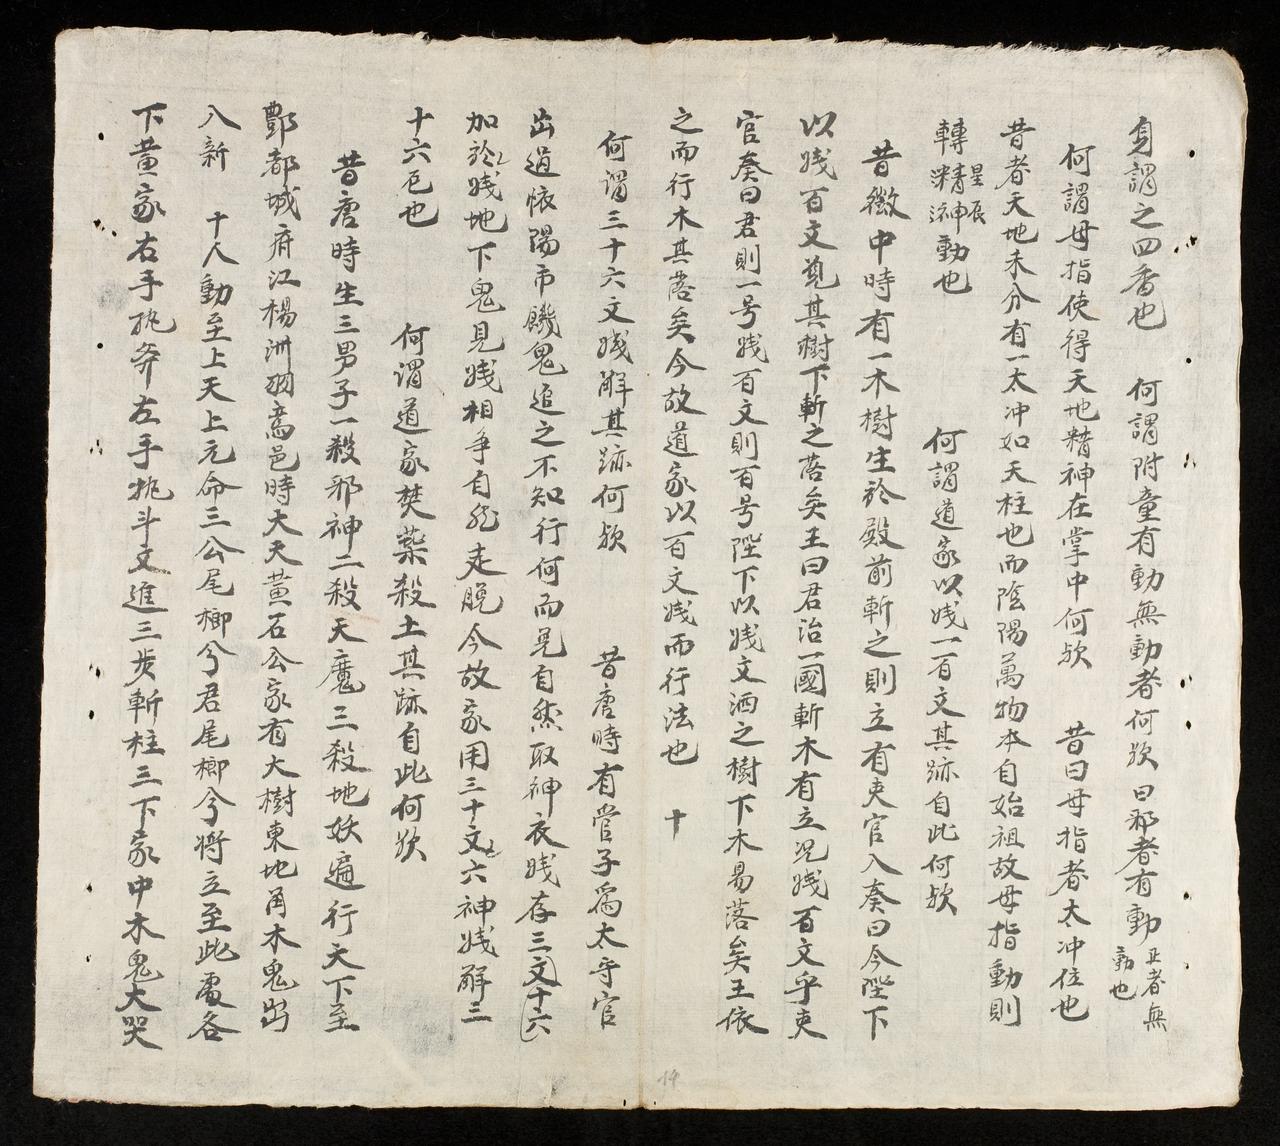 身謂之四香也 何謂附童有動無動者何欤曰邪者有動正者無動也
何謂母指使得天地精神在掌中何欤 昔曰母指者太冲位也
昔者天地未分有一太冲如天柱也而陰陽萬物本自始祖故母指動則
轉星辰精神動也 何謂道家以㦮一百文其跡自此何欤
昔徵中時有一木樹生於殿前斬之則立有吏官入奏曰今陛下
以㦮百文奠其樹下斬之落矣王曰君治一國斬木有立况㦮百文乎吏
官奏曰君則一号㦮百文則百号陛下以㦮文洒之樹下木易落矣王依
之而行木其落矣今故道家以百文㦮而行法也 十
何謂三十六文㦮解其跡何欤 昔唐時有管子爲太守官
出道恢陽市饑鬼追之不知行何而見自然取神衣㦮存三文十六
加於㦮地下鬼見㦮相争自能走脱今故家用三十文六神㦮解三
十六厄也 何謂道家焚藥殺土其跡自此何欤
昔唐時生三男子一殺邪神二殺天魔三殺地妖遍行天下至
酆都城府江楊洲 邑時大天黄石公家有大樹東地角木鬼出
入新 十人動至上天上元命三公尾柳兮君尾柳兮將立至此處各
下黄家右手执斧左手执斗文進三步斬柱三下家中木鬼大哭